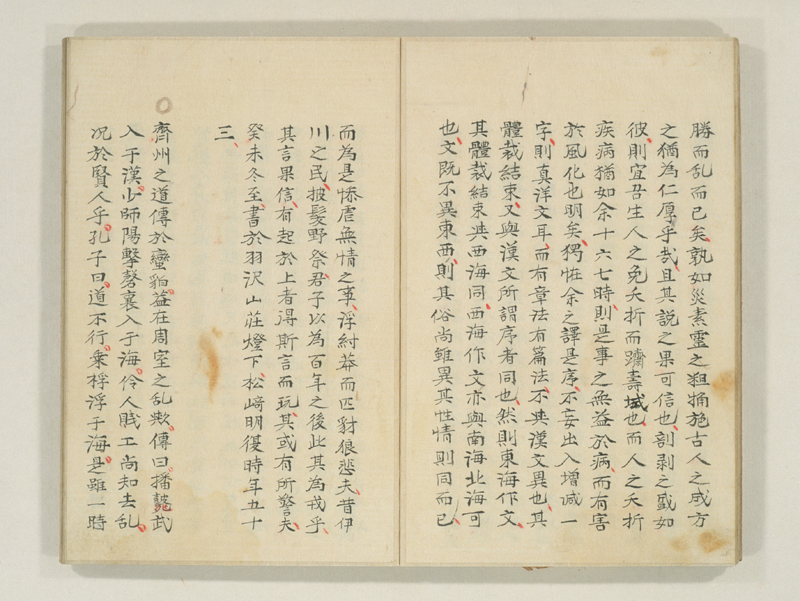 勝而乱而已矣孰如災素霊之粗桶施古人之成方
之猶為仁厚乎哉且其説之果可信也剖剥之盛如
彼則宜吾生人之免夭折而躋壽域也而人之夭折
疾病猶如余十六七時則是事之無益於病而有害
於風化也明矣獨恠余之譯是序不妄出入増减一
字則真洋文耳而有章法有篇法不与漢文異也其
體裁結束又與漢文所謂序者同也然則東海作文
其體裁結束与西海同西海作文亦與南海北海可
也文既不異東西則其俗尚雖異其性情則同而已
而為是惨虐無情之事浮紂莽而匹豺狼悲夫昔伊
川之民披髪野祭君子以為百年之後此其為戎乎
其言果信有起於上者得斯言而玩其或有所警夫
癸未冬至書於羽沢山荘燈下松﨑明復時年五十
三
齊州之道傳於蠻貊益在周室之乱欤傳曰播鼗武
入于漢少師陽擊磬襄入于海伶人賤工尚知去乱
况於賢人乎孔子曰道不行乗桴浮于海是雖一時